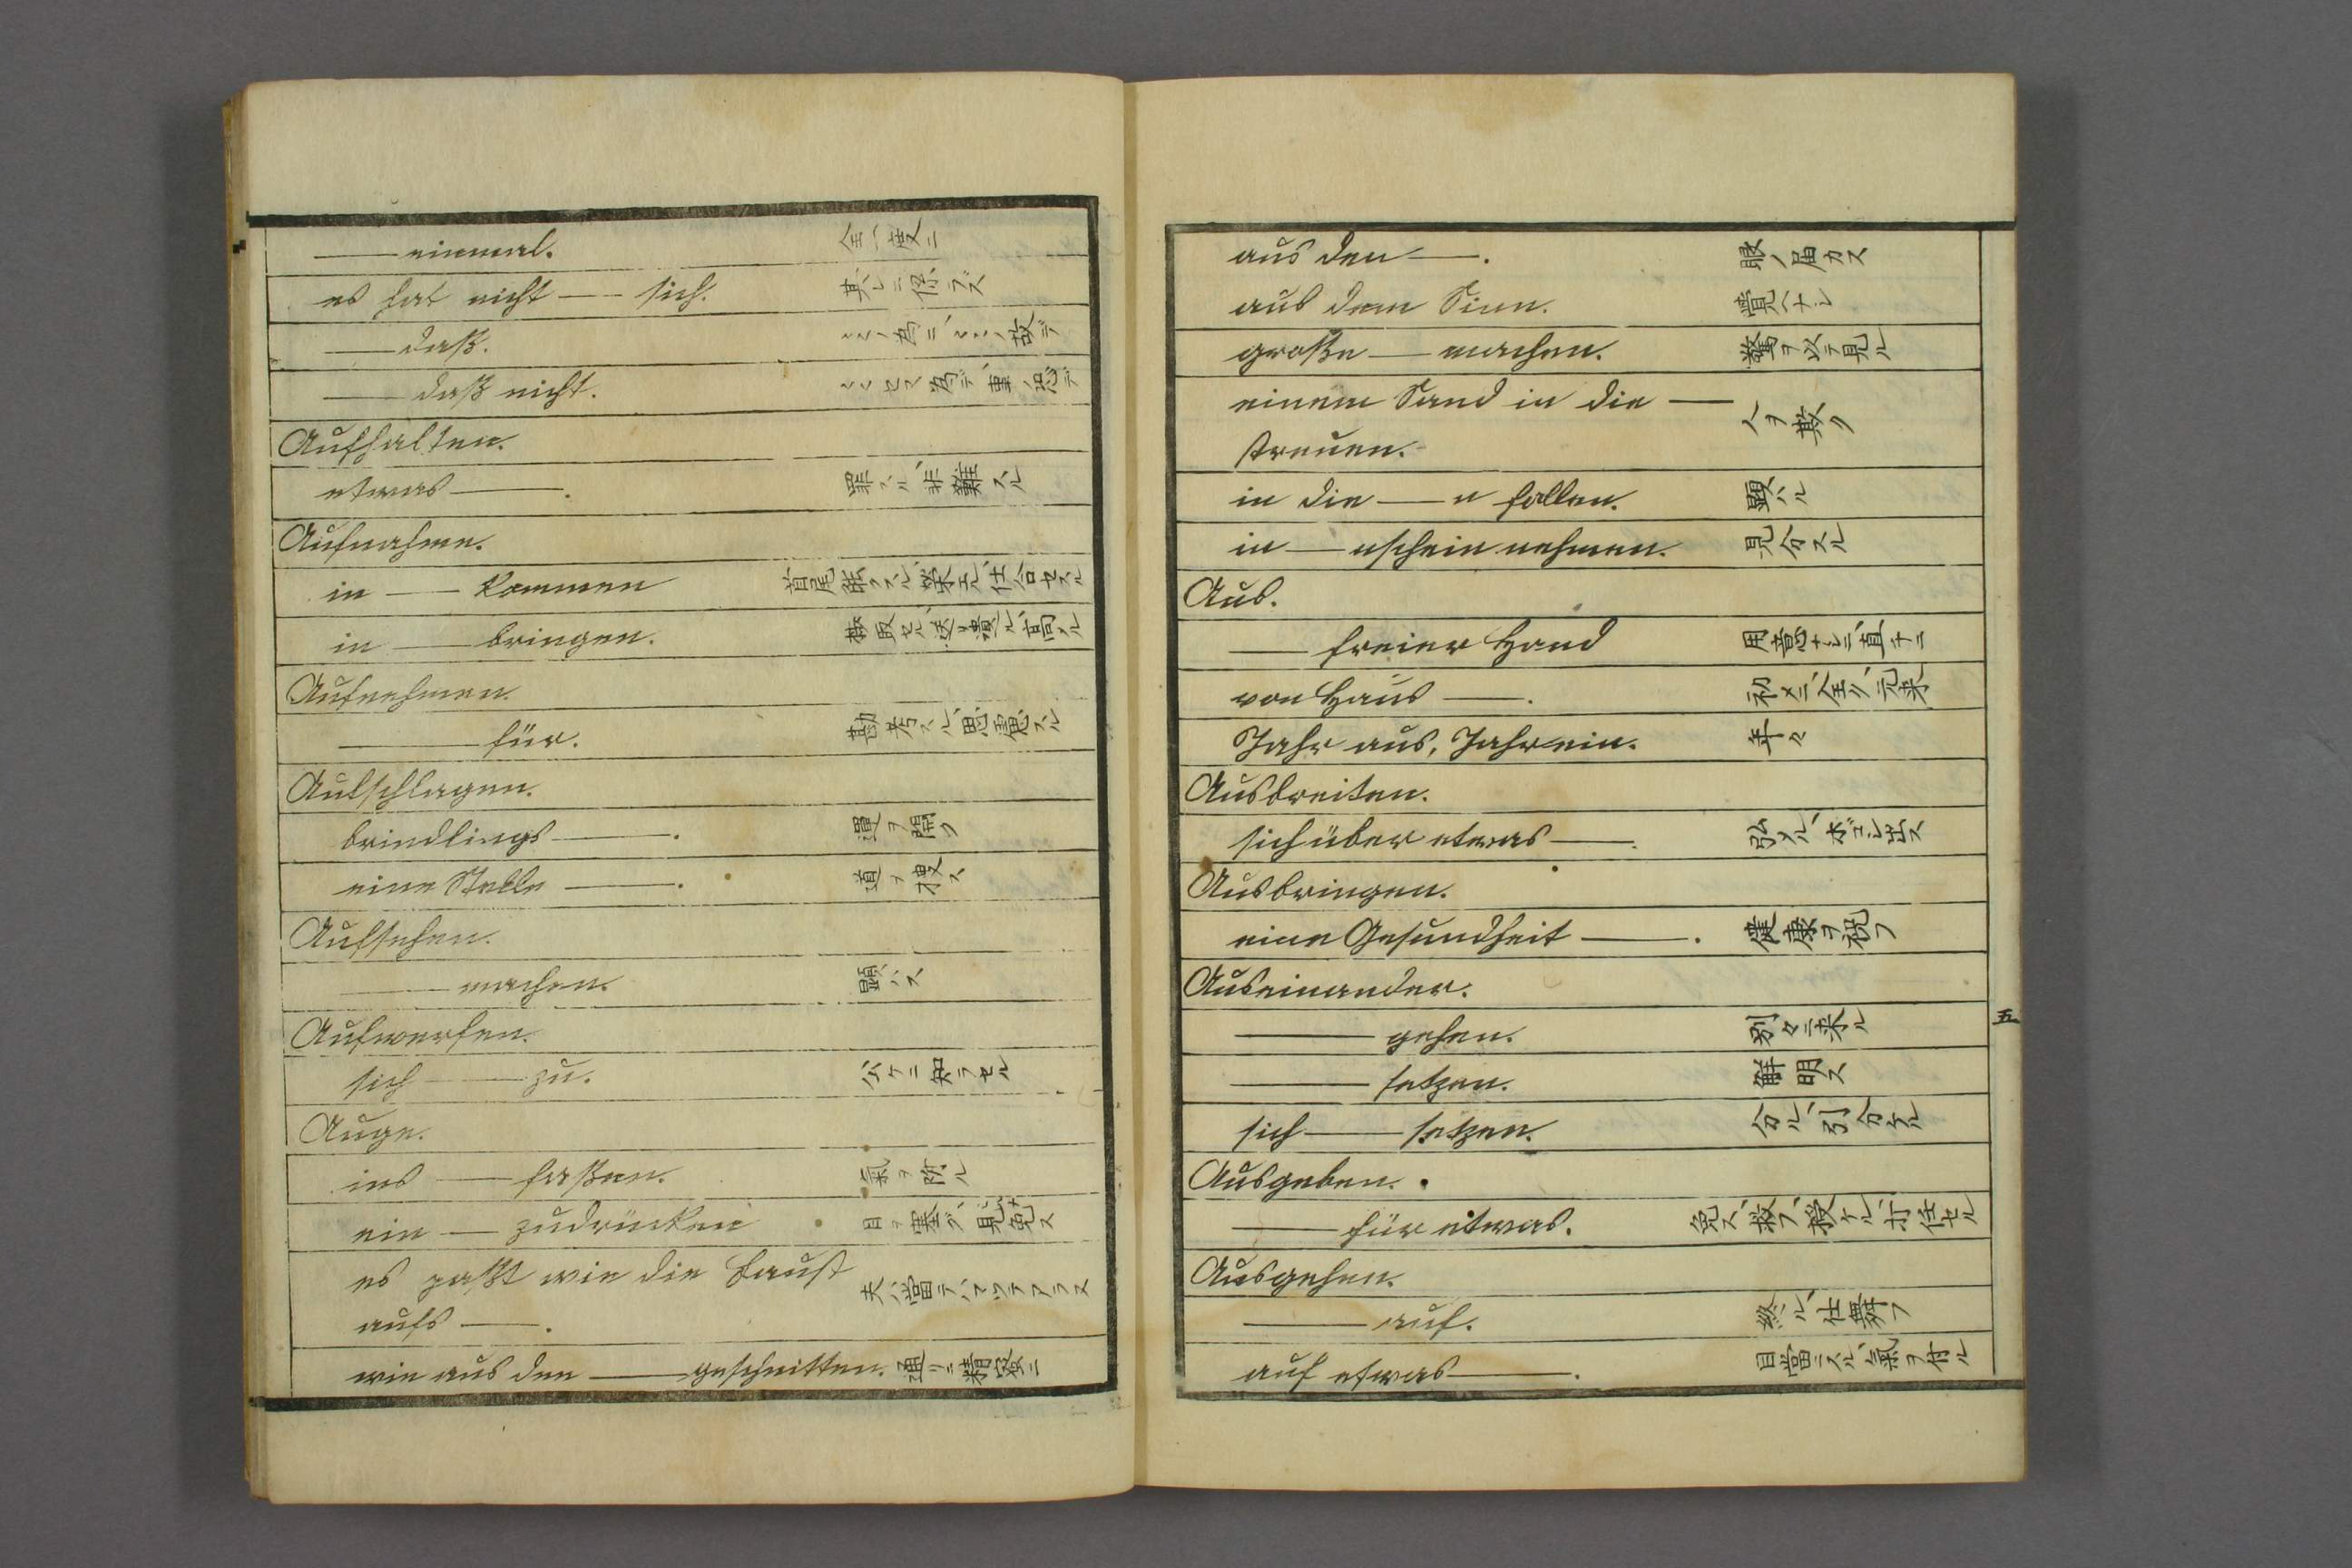 —— einmal. 全一度ニ
es hat nicht —— sich. 其レニ係ラズ
—— daß.
—— daß nicht.
Aufhalten.
etwas ——. 罪スル、非難スル
Aufnahme.
in —— kommen
in —— bringen.
Aufnehmen.
—— für. 勘考スル、思慮スル
Aufschlagen.
brindlings ——. 運ヲ開ク
eine Stelle ——. 道ヲ捜ス
Aufsehen.
—— machen. 顕ハス
Aufwerfen.
sich —— zu. 公ケニ知ラセル
Auge.
ins —— faßen.
ein —— zudrücken 目ヲ塞グ、見免ス
es paßt wie die Faust
aufs ——.
wie aus den —— geschnitten. 通リニ精密ニ
aus den ——. 眼ノ届カス
aus dem Sinn. 覺ヘナシ
große —— machen. 驚ヲ以テ見ル
einem Sand in die —— 人ヲ欺ク
streuen.
in die —— n fallen. 顕ハル
in —— nschein nehmen. 見分スル
Aus.
—— freier Hand 用意ナシニ、直チニ
von Haus ——. 初メニ、全ク、元来
Jahr aus, Jahr ein. 年々
Ausbreiten.
sich über etwas ——.
Ausbringen.
eine Gesundheit ——. 健康ヲ祝フ
Auseinander.
—— gehen. 別々ニ来ル
—— setzen. 解明ス
sich —— setzen. 分ル、引分ケル
Ausgeben.
—— für etwas.
Ausgehen.
—— auf. 終ル、仕舞フ
auf etwas ——. 目當ニスル、氣ヲ付ル
五